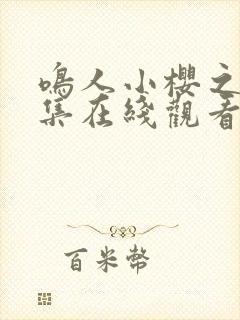 鳴人小櫻之
集在綫觀看
百米幣